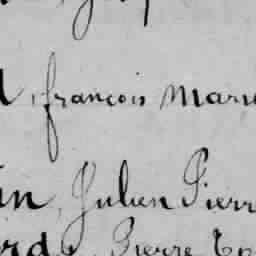 , françois Marie
in, Julien Pierr
rd, Pierre